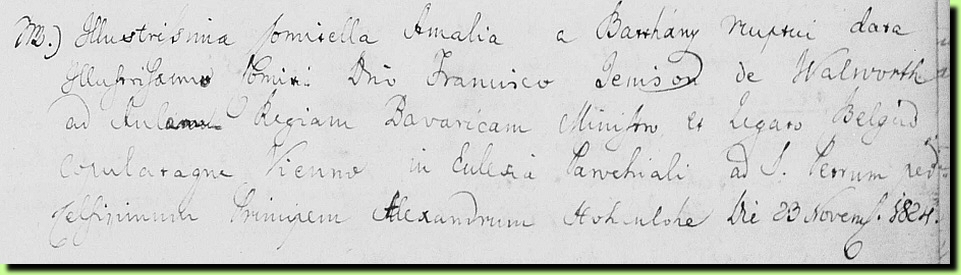 NB.) Illustrissima Comitella Amalia a Batthány Nuptui data
Illustrissimo Comiti Dno Francisco Jenison de Walworth
ad Aulam Regiam Bavaricam Ministro et Legato
copulataque Viennæ in Ecclesia Parochiali ad S. Petrum per
Celsissimum Principem Alexandrum Hohenlohe Die 23 Novem. 1824.